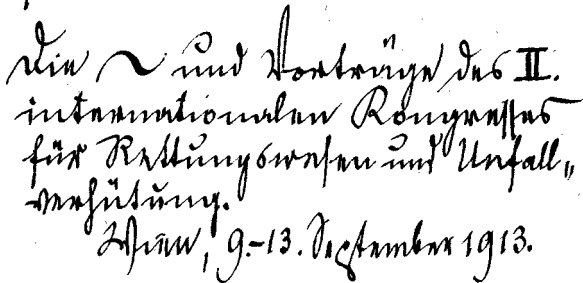 Die und Vorträge des II.
internationalen Kongresses
für Rettungswesen und Unfall„
verhütung.
Wien, 9.-13. September 1913.